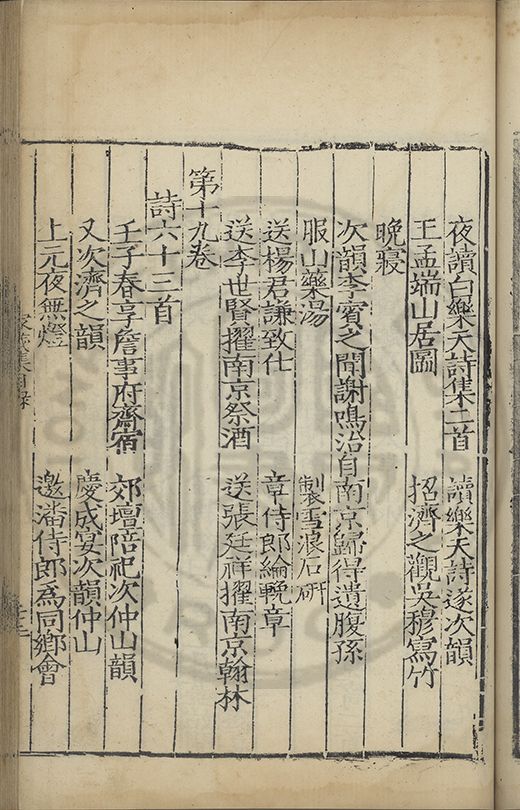 夜讀白樂天詩集二首　讀樂天詩遂次韻
王孟端山居圖　招濟之觀吳穆寫竹
晚寢
次韻李賓之聞謝鳴治自南京歸得遺腹孫
服山藥湯　製雪浪石研
送楊君謙致仕　章侍郎綸輓章
送李世賢擢南京祭酒　送張廷祥擢南京翰林
第十九卷
詩六十三首
壬子春享詹事府齋宿　郊壇陪祀次仲山韻
又次濟之韻　慶成宴次韻仲山
上元夜無燈　邀潘侍郎爲同鄉會
家藏集目錄